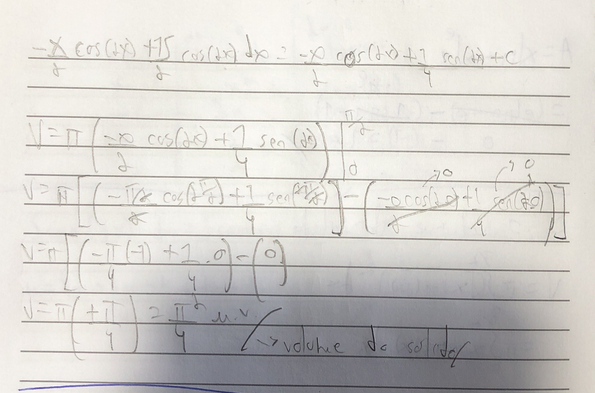 -x/2 cos(2x) + 1/2 ∫ cos(2x) dx = -x/2 cos(2x) + 1/4 sen(2x) + C
V = π ( -x/2 cos(2x) + 1/4 sen(2x) ) |₀^π/2
V = π [ ( -π/2/2 cos(2π/2) + 1/4 sen(2π/2) ) - ( -0 cos(2.0)/2 + 1/4 sen(2.0) ) ] → 0 → 0
V = π [ ( -π/4 (-1) + 1/4 . 0 ) - (0)
V = π ( +π/4 ) = π²/4 u.v → volume do solido